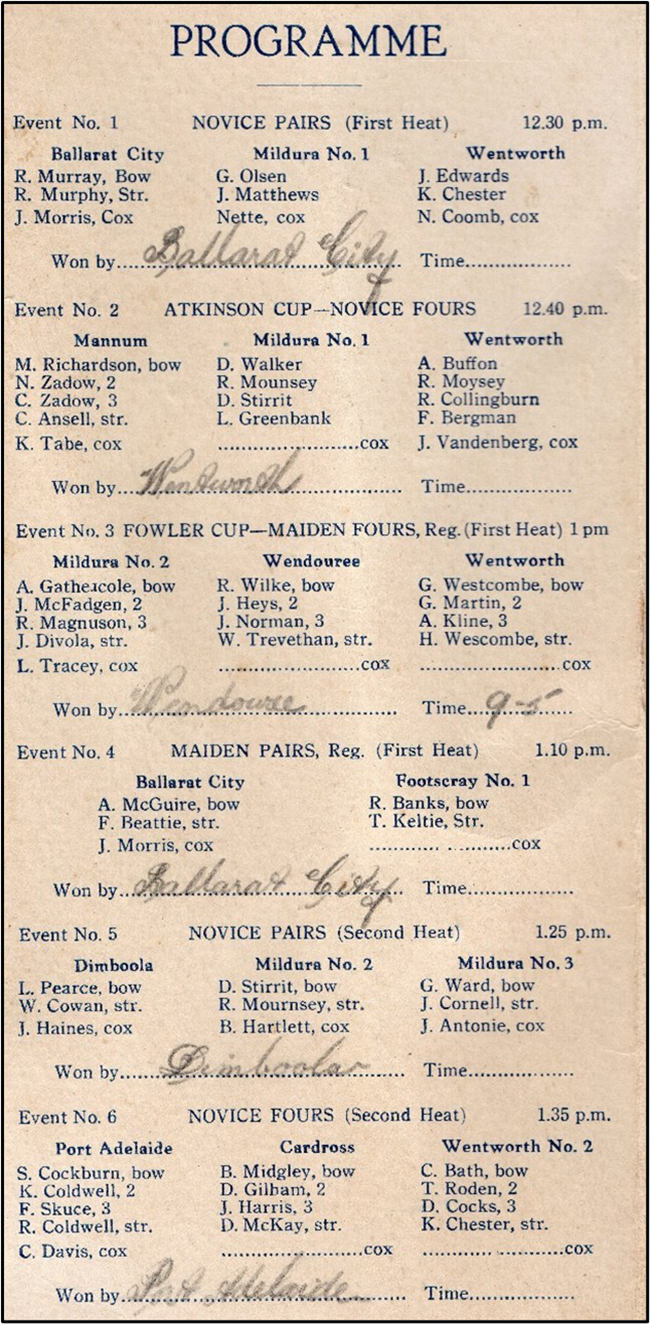 PROGRAMME
Event No. 1 NOVICE PAIRS (First Heat) 12.30 p.m.
Ballarat City Mildura No. 1 Wentworth
R. Murray, Bow G. Olsen J. Edwards
R. Murphy, Str. J. Matthews K. Chester
J. Morris, Cox Nette, cox N. Coomb, cox
Won by Ballarat City Time
Event No. 2 ATKINSON CUP—NOVICE FOURS 12.40 p.m.
Mannum Mildura No. 1 Wentworth
M. Richardson, bow D. Walker A. Buffon
N. Zadow, 2 R. Mounsey R. Moysey
C. Zadow, 3 D. Stirrit R. Collingburn
C. Ansell, str. L. Greenbank F. Bergman
K. Tabe, cox ....................cox J. Vandenberg, cox
Won by Wentworth Time
Event No. 3 FOWLER CUP—MAIDEN FOURS, Reg. (First Heat) 1 pm
Mildura No. 2 Wendouree Wentworth
A. Gathercole, bow R. Wilke, bow G. Westcombe, bow
J. McFadgen, 2 J. Heys, 2 G. Martin, 2
R. Magnuson, 3 J. Norman, 3 A. Kline, 3
J. Divola, str. W. Trevethan, str. H. Wescombe, str.
L. Tracey, cox ....................cox ....................cox
Won by Wendouree Time 9-5
Event No. 4 MAIDEN PAIRS, Reg. (First Heat) 1.10 p.m.
Ballarat City Footscray No. 1
A. McGuire, bow R. Banks, bow
F. Beattie, str. T. Keltie, Str.
J. Morris, cox ....................cox
Won by Ballarat City Time
Event No. 5 NOVICE PAIRS (Second Heat) 1.25 p.m.
Dimboola Mildura No. 2 Mildura No. 3
L. Pearce, bow D. Stirrit, bow G. Ward, bow
W. Cowan, str. R. Mournsey, str. J. Cornell, str.
J. Haines, cox B. Hartlett, cox J. Antonie, cox
Won by Dimboola Time
Event No. 6 NOVICE FOURS (Second Heat) 1.35 p.m.
Port Adelaide Cardross Wentworth No. 2
S. Cockburn, bow B. Midgley, bow C. Bath, bow
K. Coldwell, 2 D. Gilham, 2 T. Roden, 2
F. Skuce, 3 J. Harris, 3 D. Cocks, 3
R. Coldwell, str. D. McKay, str. K. Chester, str.
C. Davis, cox ....................cox ....................cox
Won by Port Adelaide Time